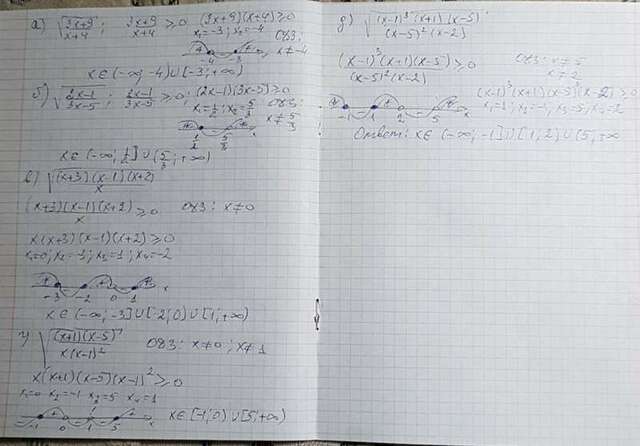 а) √(3x+9)/(x+4) ; (3x+9)/(x+4) ≥ 0 (3x+9)(x+4) ≥ 0
x₁ = -3; x₂ = -4 ОДЗ:
x ≠ -4
-4 -3 x
x ∈ (-∞; -4) ∪ [-3; +∞)
б) √(2x-1)/(3x-5) ; (2x-1)/(3x-5) ≥ 0; (2x-1)(3x-5) ≥ 0
x₁ = 1/2; x₂ = 5/3 ОДЗ:
x ≠ 5/3
1/2 5/3 x
x ∈ (-∞; 1/2] ∪ (5/3; +∞)
в) √(x+3)(x-1)(x+2)/x
(x+3)(x-1)(x+2)/x ≥ 0 ОДЗ: x ≠ 0
x(x+3)(x-1)(x+2) ≥ 0
x₁ = 0; x₂ = -3; x₃ = 1; x₄ = -2
-3 -2 0 1 x
x ∈ (-∞; -3] ∪ [-2; 0) ∪ [1; +∞)
г) √(x+1)(x-5)/x(x-1)² ОДЗ: x ≠ 0; x ≠ 1
x(x+1)(x-5)(x-1)² ≥ 0
x₁ = 0 x₂ = -1 x₃ = 5 x₄ = 1
-1 0 1 5 x x ∈ [-1; 0) ∪ [5; +∞)
д) √(x-1)³(x+1)(x-5)/(x-5)²(x-2)
(x-1)³(x+1)(x-5)/(x-5)²(x-2) ≥ 0 ОДЗ: x ≠ 5
x ≠ 2
(x-1)³(x+1)(x-5)(x-2) ≥ 0
x₁ = 1; x₂ = -1, x₃ = 5, x₄ = 2
-1 1 2 5 x
Ответ: x ∈ (-∞; -1] ∪ [1; 2) ∪ (5; +∞